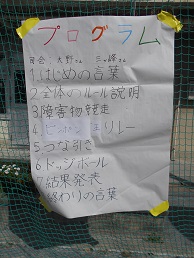 プログラム
司会 大野さん 三ヶ峰さん
1.はじめの言葉
2全体のルール説明
3.障害物競走
4.ピンポン玉リレー
5つな引き
6ドッジボール
7結果発表
終わりの言葉